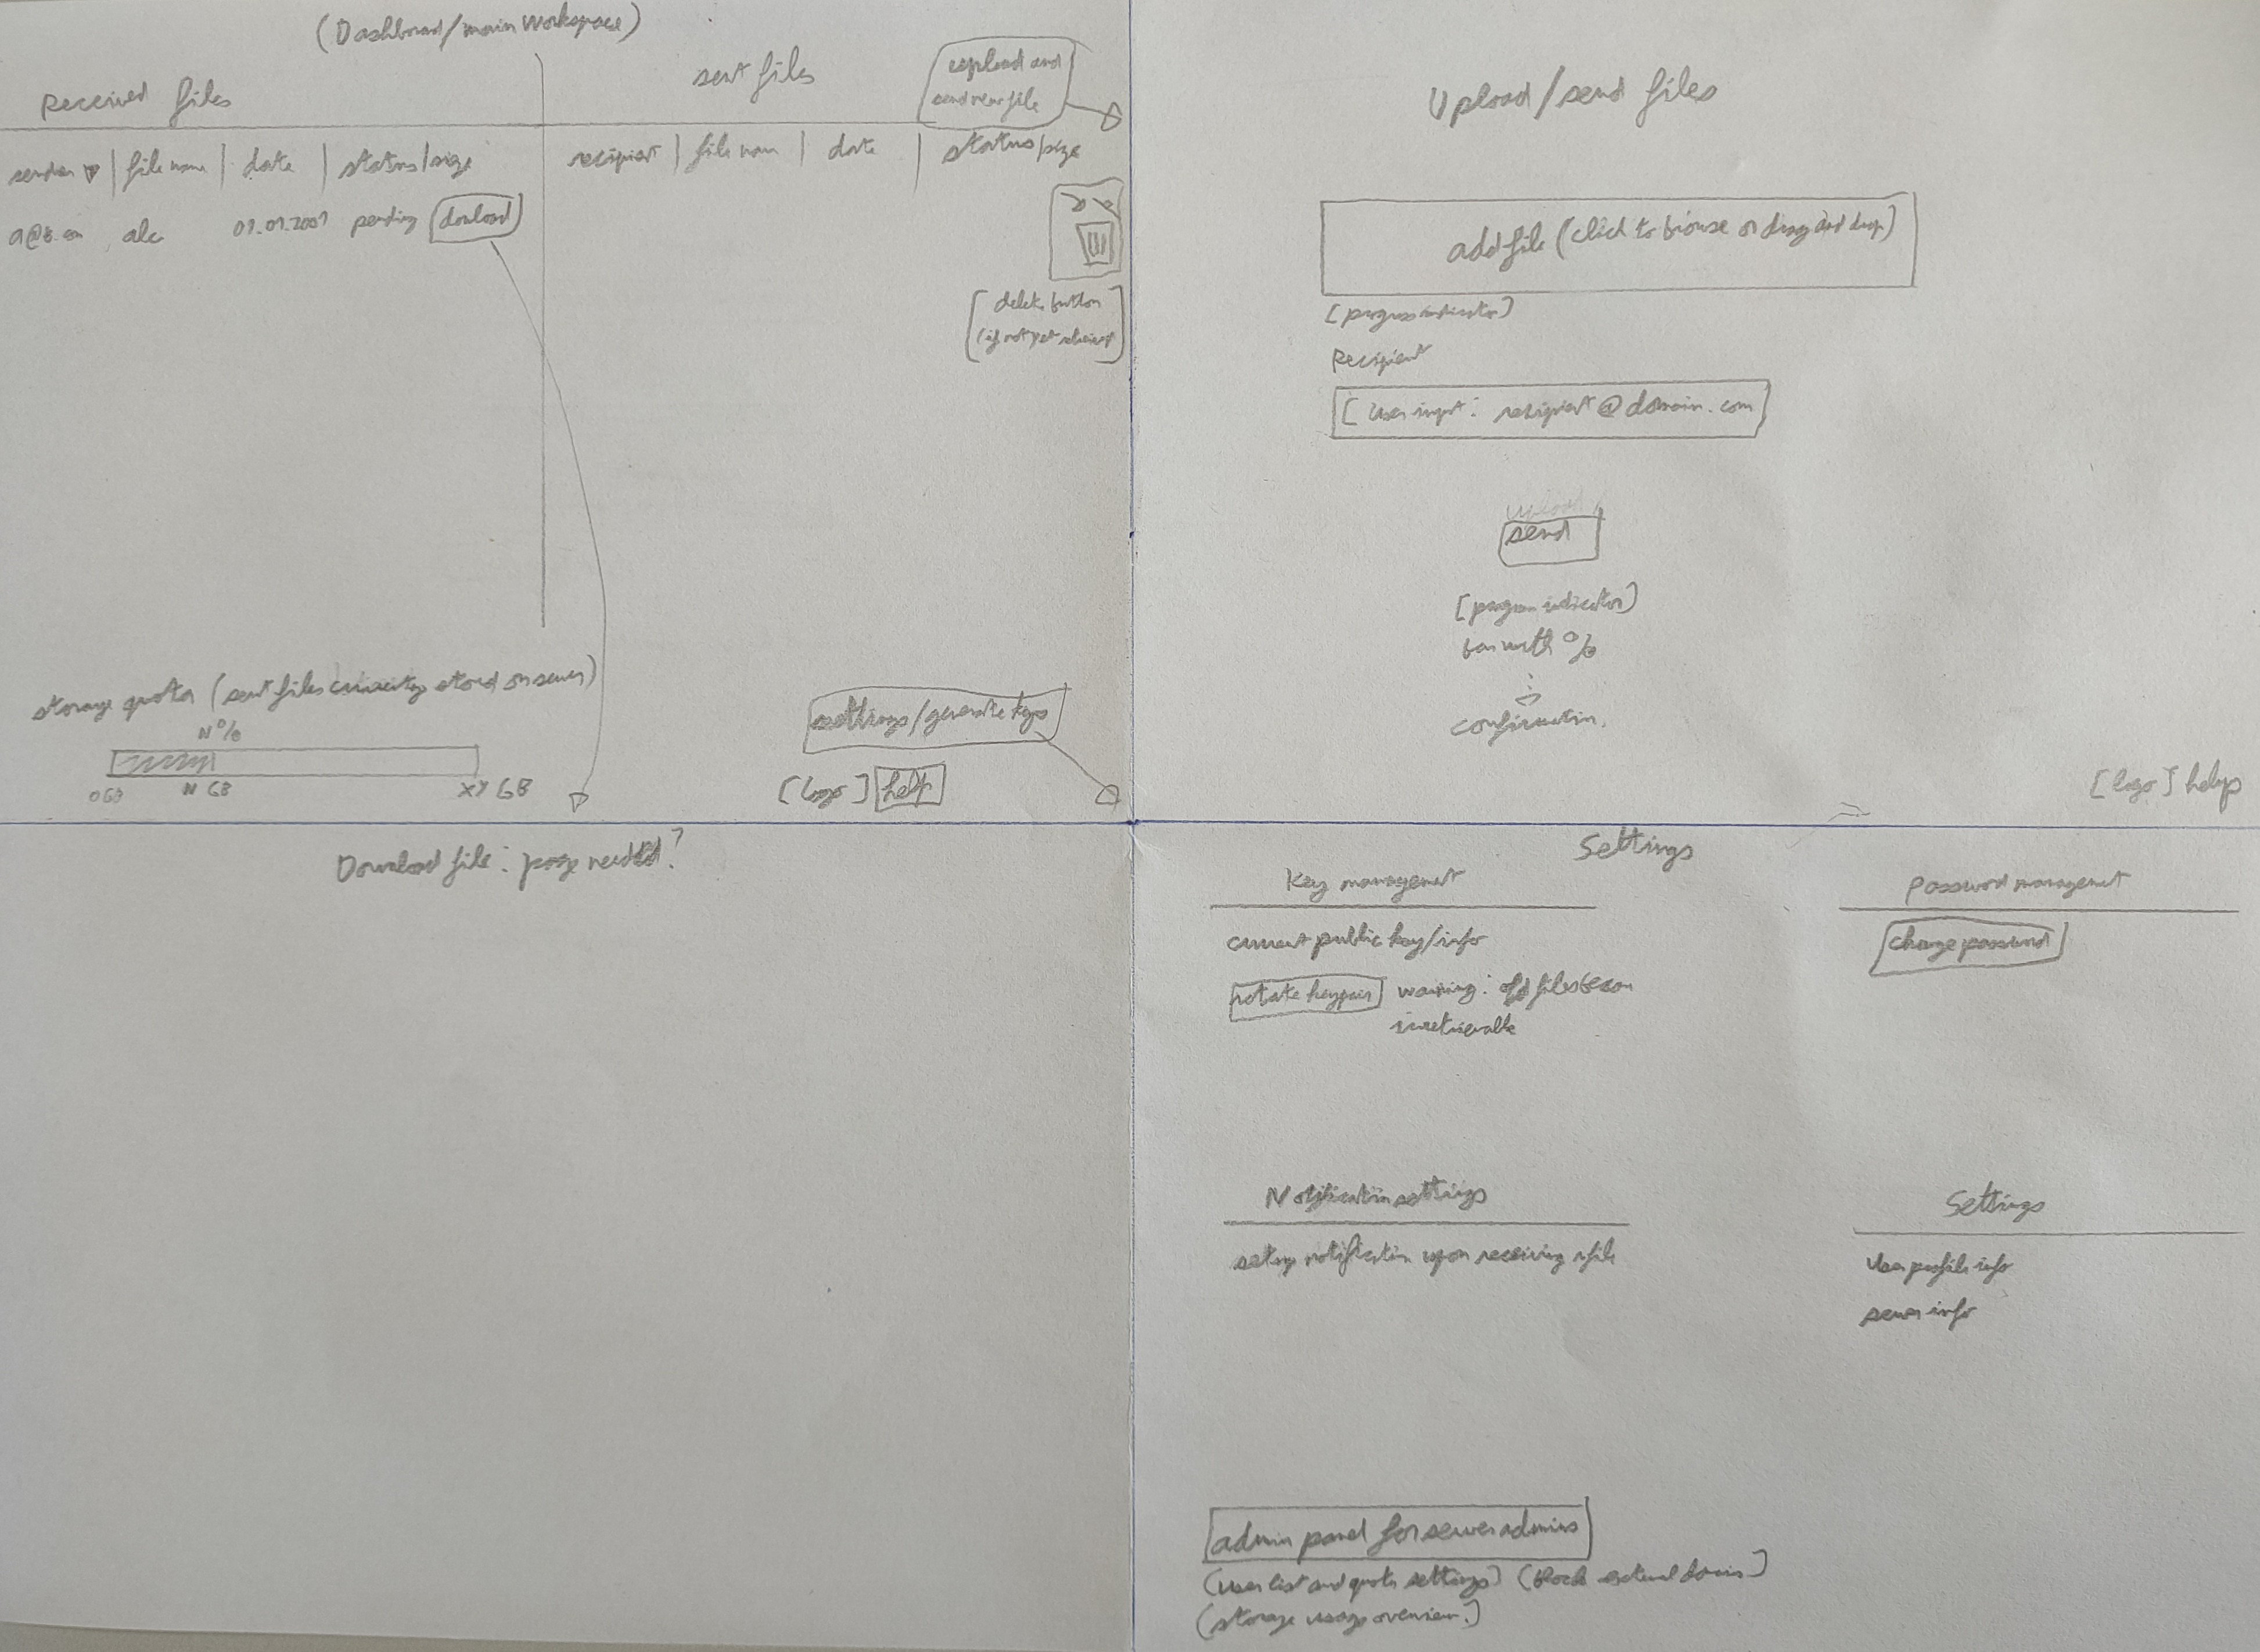 (Dashboard/main workspace)
Received files
sent files
upload and
send new file
sender | file name | date | status/size
recipient | file nam | date | status/size
a@b.com abc 01.01.2001 pending donload
delete button
(if not yet retrieved)
storage quota (sent files currently stored on server)
N%
0GB N GB XY GB
settings/generate keys
[logo] help
Upload/send files
add file (click to browse or drag and drop)
[progress indicator]
Recipient
[User input: recipient@domain.com]
send
[progress indicator]
bar with %
confirmation.
[logo] help
Download file: page needed?
Settings
Key management
current public key/info
rotate keypair warning: old files becom
irretrievable
Password managemet
change password
Notification settings
setup notification upon receiving a file
Settings
User profile info
server info
admin panel for server admins
(user list and quota settings) (block external domains)
(storage usage overview.)